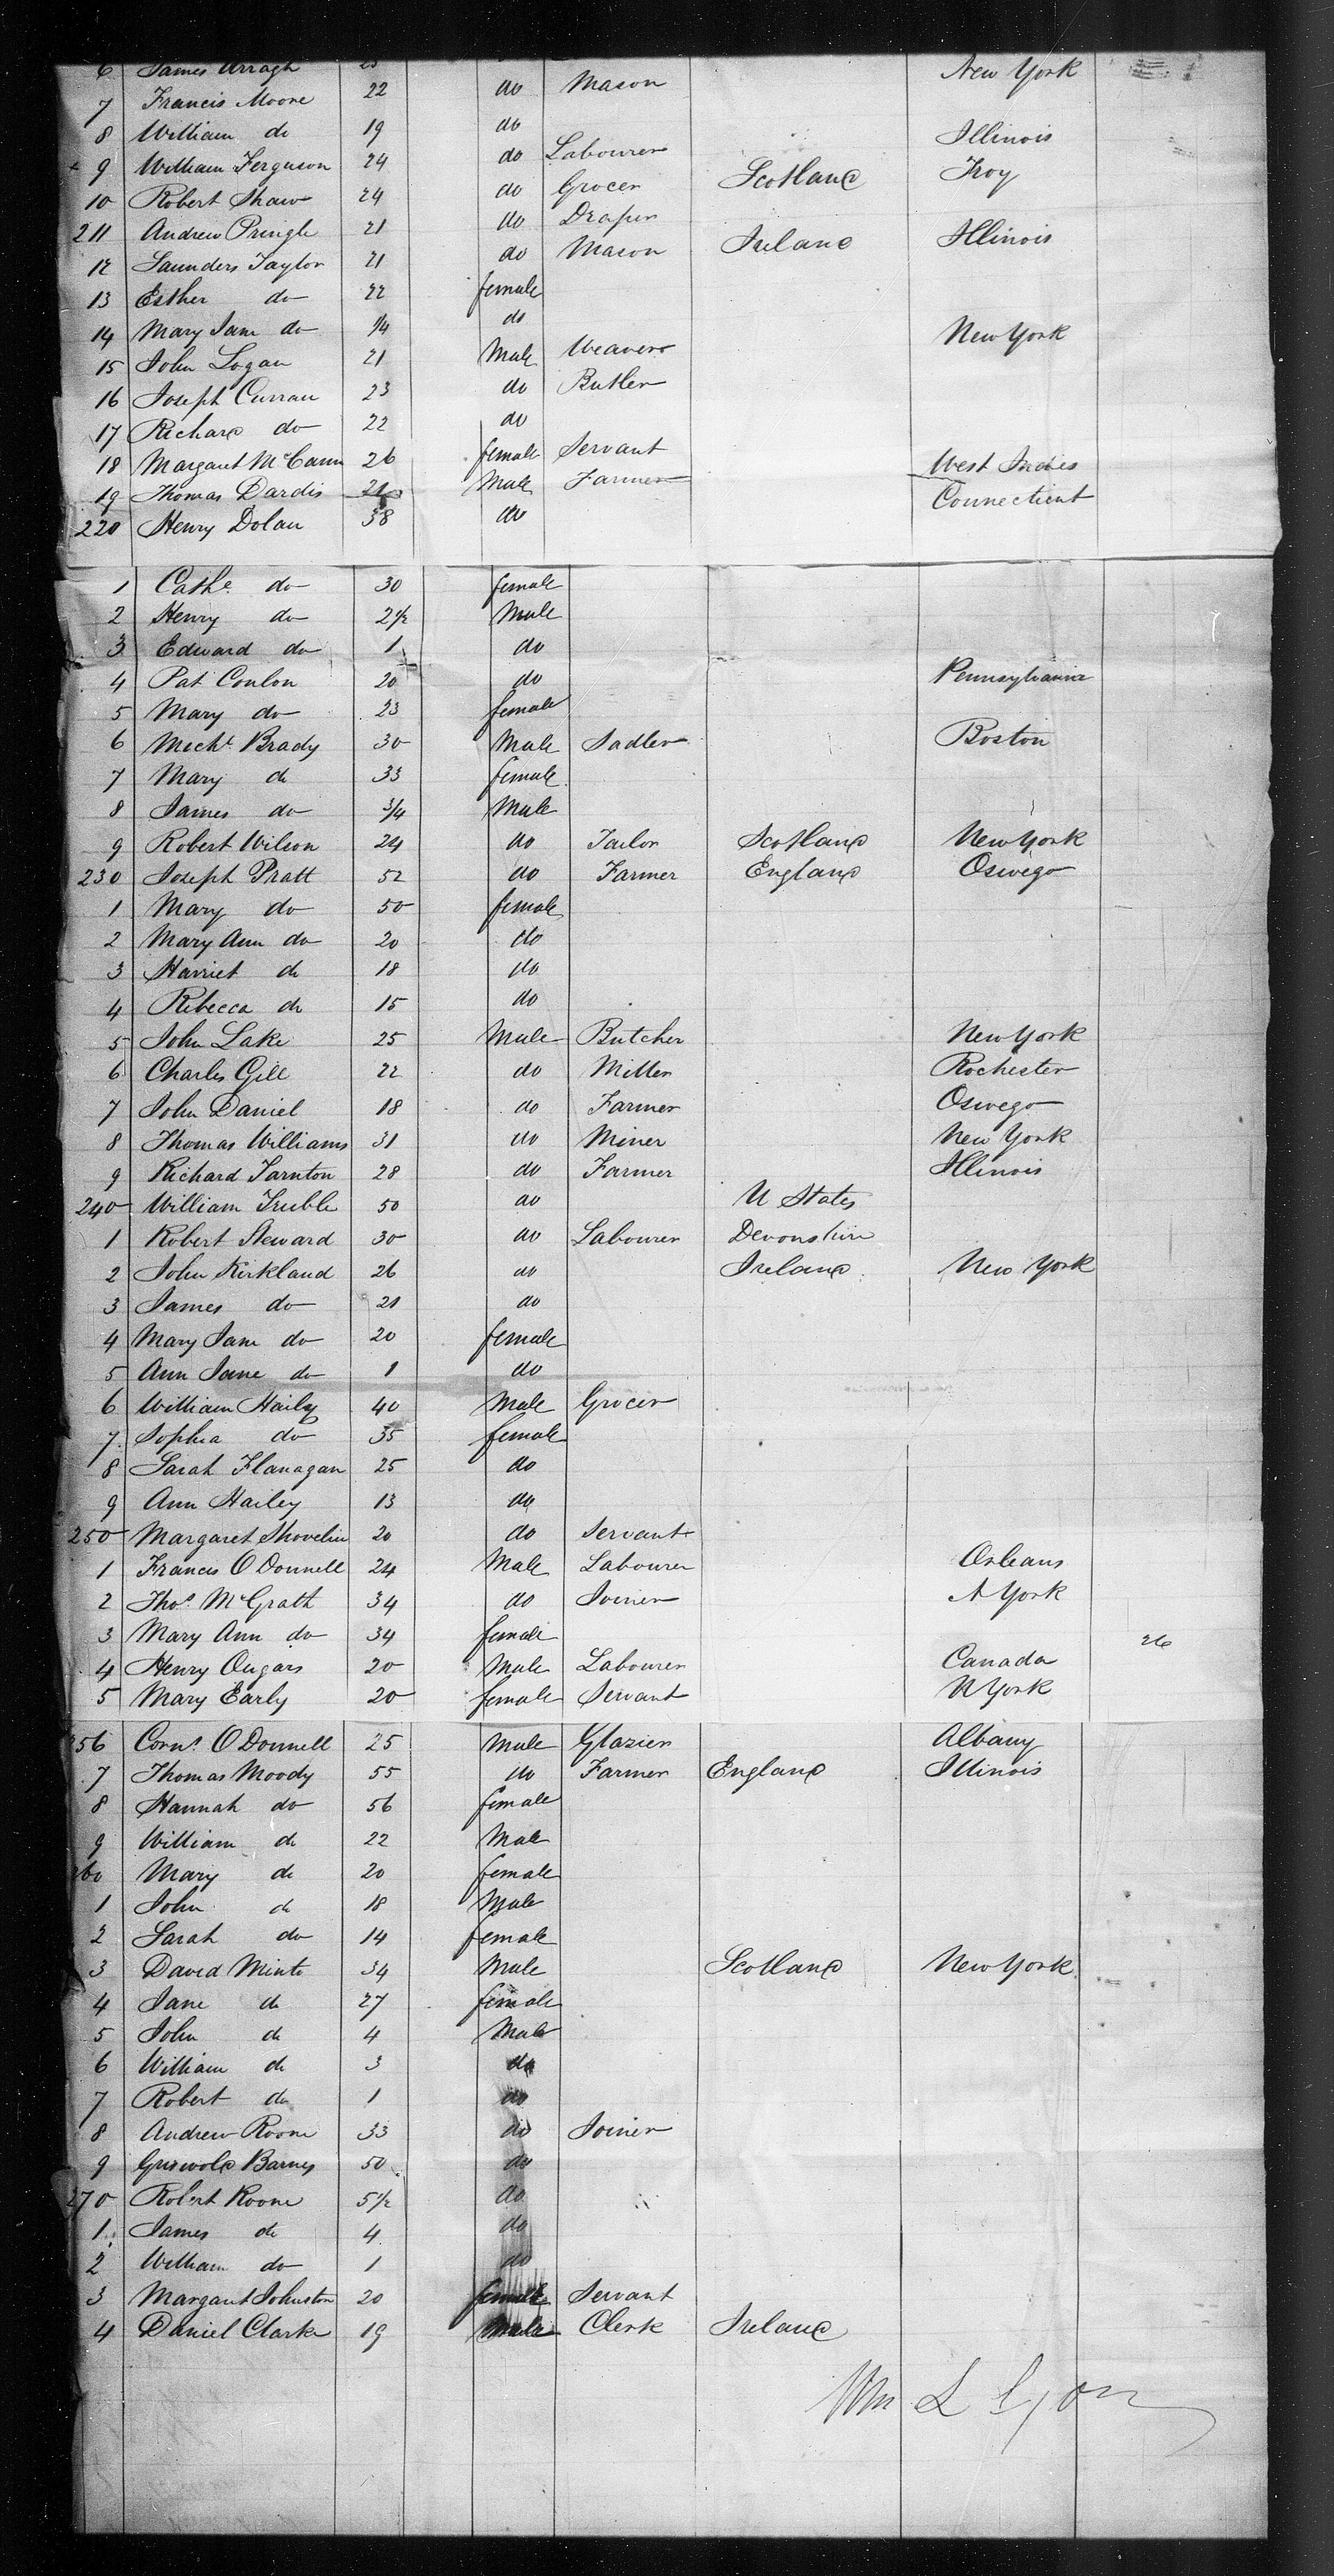 6 James Arragh 23 New York
7 Francis Moore 22 do Mason
8 William do 19 do Illinois
9 William Ferguson 24 do Labourer
10 Robert Shaw 24 do Grocer Scotland Troy
211 Andrew Pringle 21 do Draper
12 Saunders Taylor 21 do Mason Ireland Illinois
13 Esther do 22 female
14 Mary Jane do 1/4 do
15 John Logan 21 Male Weaver New York
16 Joseph Curran 23 do Butler
17 Richard do 22 do
18 Margaret McCann 26 female Servant
19 Thomas Dardis Male Farmer West Indies
220 Henry Dolan 38 do Connecticut
1 Cathe. do 30 female
2 Henry do 2 1/2 Male
3 Edward do 1 do
4 Pat Conlon 20 do Pennsylvania
5 Mary do 23 female
6 Michl. Brady 30 Male Sadler Boston
7 Mary do 33 female
8 James do 3/4 Male
9 Robert Wilson 24 do Tailor Scotland New York
230 Joseph Pratt 52 do Farmer England Oswego
1 Mary do 50 female
2 Mary Ann do 20 do
3 Harriet do 18 do
4 Rebecca do 15 do
5 John Lake 25 Male Butcher New York
6 Charles Gill 22 do Miller Rochester
7 John Daniel 18 do Farmer Oswego
8 Thomas Williams 31 do Miner New York
9 Richard Tarnton 28 do Farmer Illinois
240 William Treble 50 do U States
1 Robert Steward 30 do Labourer Devonshire
2 John Kirkland 26 do Ireland New York
3 James do 21 do
4 Mary Jane do 20 female
5 Ann Jane do 1 do
6 William Haily 40 Male Grocer
7 Sophia do 35 female
8 Sarah Flanagan 25 do
9 Ann Hailey 13 do
250 Margaret Shovelin 20 do Servant
1 Francis O Donnell 24 Male Labourer Orleans
2 Thos. McGrath 34 do Joiner N York
3 Mary Ann do 34 female
4 Henry 20 Male Labourer Canada 26
5 Mary Early 20 female Servant N York
256 Corns. O Donnell 25 Male Glazier Albany
7 Thomas Moody 55 do Farmer England Illinois
8 Hannah do 56 female
9 William do 22 Male
260 Mary do 20 female
1 John do 18 Male
2 Sarah do 14 female
3 David Minto 34 Male Scotland New York
4 Jane do 27 female
5 John do 4 Male
6 William do 3 do
7 Robert do 1 do
8 Andrew Roone 33 do Joiner
9 Griswold Barnes 50 do
270 Robert Roone 5 1/2 do
1 James do 4 do
2 William do 1 do
3 Margaret Johnston 20 female Servant
4 Daniel Clarke 19 Male Clerk Ireland
Wm L Lyon